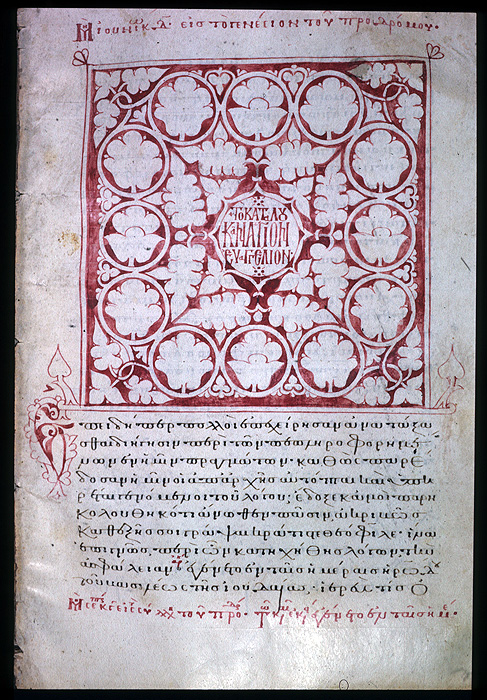 Μ ιουνίω κδ εἰς τὸ γενέσιον τοῦ προδρόμου·
Τὸ κατὰ Λου
κᾶν ἅγιον
εὐαγγέλιον·
Ἐπειδήπερ πολλοὶ ἐπεχείρησαν ἀνατάξα
σθαι διήγησιν περὶ τῶν πεπληροφορημέ
νων ἐν ἡμῖν πραγμάτων· καθὼς παρέ
δοσαν ἡμῖν οἱ ἀπαρχῆς αὐτόπται καὶ ὑπη
ρέται γενόμενοι τοῦ λόγου· ἔδοξε κἀμοὶ παρη
κολουθηκότι ἄνωθεν πᾶσιν ἀκριβῶς
καθεξῆς σοι γράψαι κράτιστε θεόφιλε· ἵνα
ἐπιγνῷς περὶ ὧν κατηχήθης λόγων τὴν
ἀσφάλειαν· ἐγένετο ἐν ταῖς ἡμέραις ἡρώδ
τοῦ βασιλέως τῆς ἰουδαίας· ἱερεύς τις ὀ
τοῦ προδ ἐγένετο ἐν ταῖς ἡμέ·